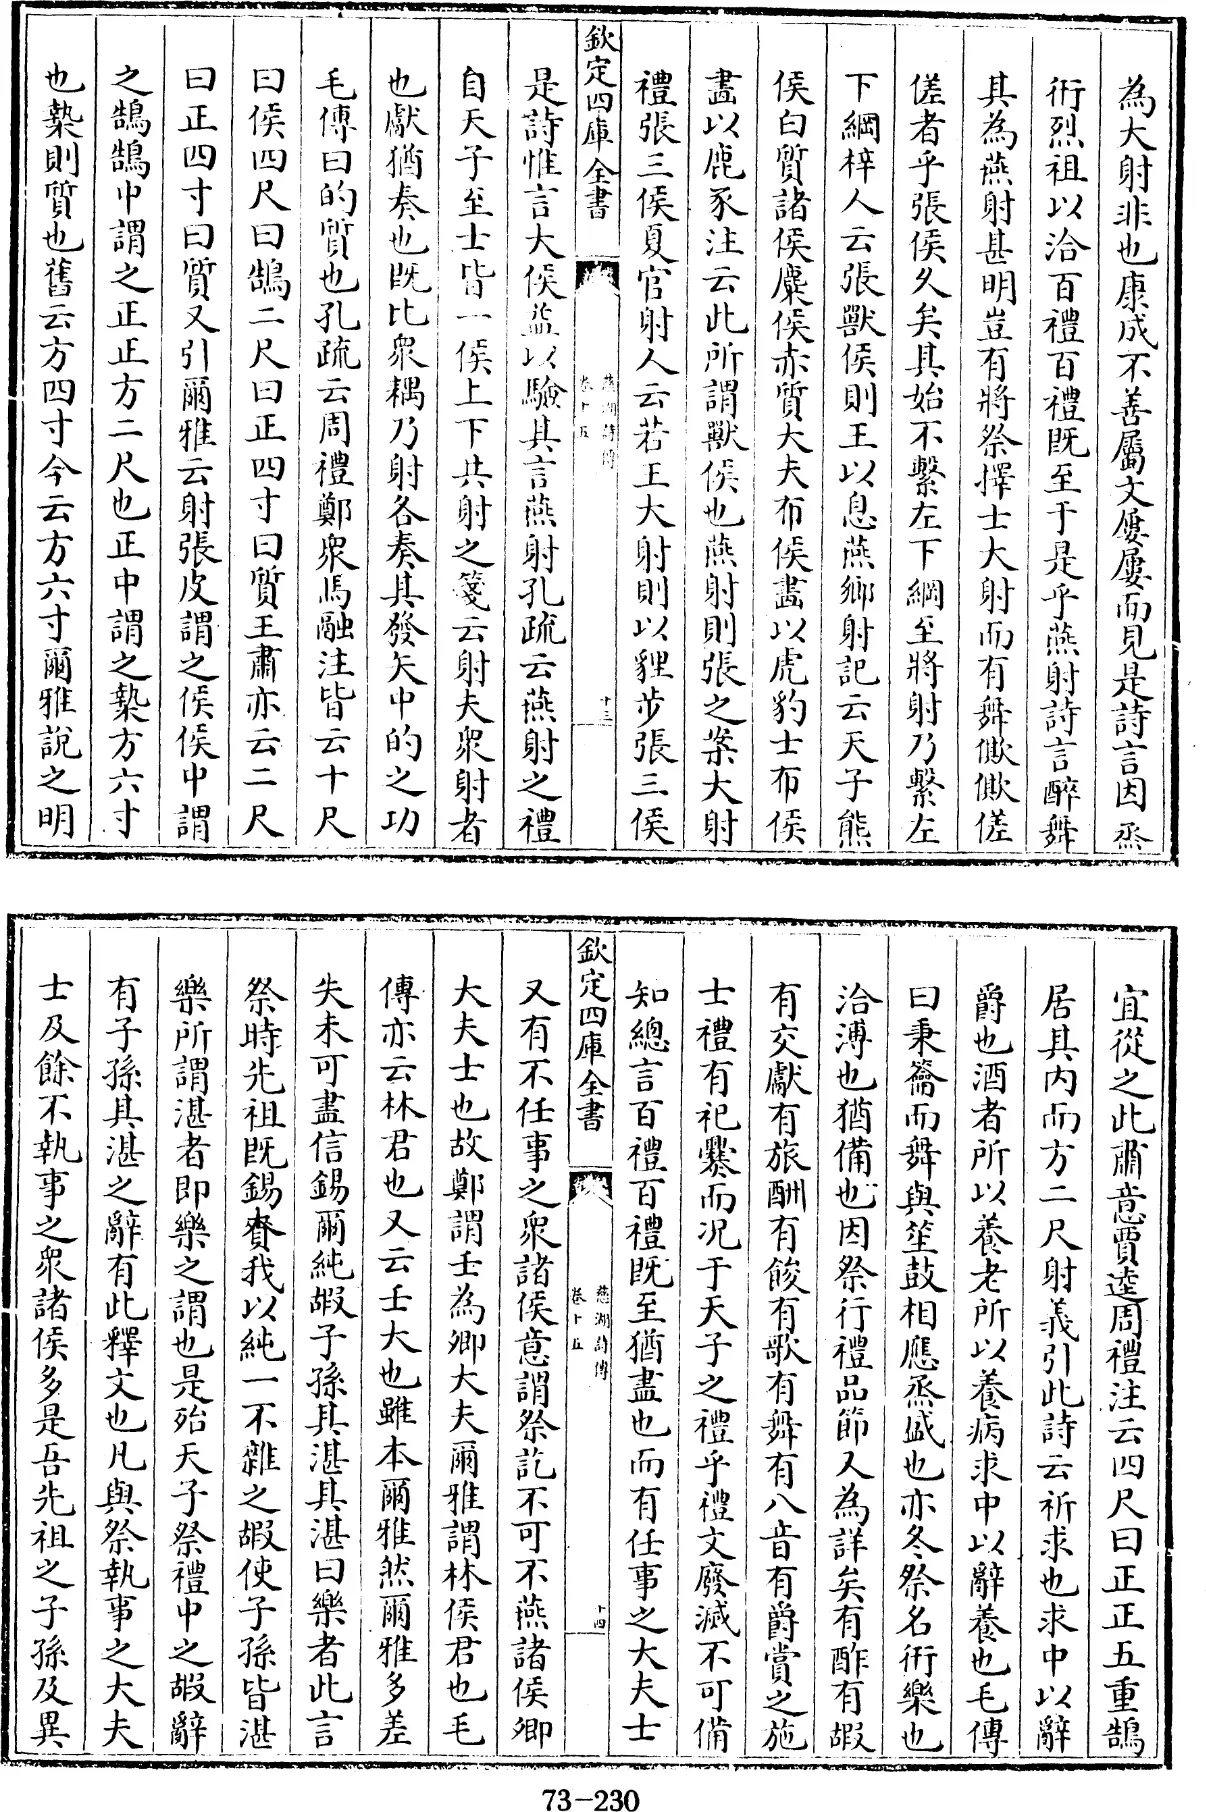 為大射非也康成不善屬文屢屢而見是詩言因烝
衎烈祖以洽百禮百禮既至于是乎燕射詩言醉舞
其為燕射甚明豈有將祭擇士大射而有舞僛僛傞
傞者乎張侯久矣其始不繫左下綱至將射乃繫左
下綱梓人云張獸侯則王以息燕鄉射記云天子熊
侯白質諸侯麋侯赤質大夫布侯畫以虎豹士布侯
畫以鹿豕注云此所謂獸侯也燕射則張之案大射
禮張三侯夏官射人云若王大射則以貍步張三侯
欽定四庫全書
慈湖詩傳
卷十五
十三
是詩惟言大侯益以驗其言燕射孔疏云燕射之禮
自天子至士皆一侯上下共射之箋云射夫衆射者
也獻猶奏也既比衆耦乃射各奏其發矢中的之功
毛傳曰的質也孔疏云周禮鄭衆馬融注皆云十尺
曰侯四尺曰鵠二尺曰正四寸曰質王肅亦云二尺
曰正四寸曰質又引爾雅云射張皮謂之侯侯中謂
之鵠鵠中謂之正正方二尺也正中謂之槷方六寸
也槷則質也舊云方四寸今云方六寸爾雅說之明
宜從之此肅意賈逵周禮注云四尺曰正正五重鵠
居其内而方二尺射義引此詩云祈求也求中以辭
爵也酒者所以養老所以養病求中以辭養也毛傳
曰秉籥而舞與笙鼓相應烝盛也亦冬祭名衎樂也
洽溥也猶備也因祭行禮品節人為詳矣有酢有嘏
有交獻有旅酬有餕有歌有舞有八音有爵賞之施
士禮有祀爨而況于天子之禮乎禮文廢滅不可備
知總言百禮百禮既至猶盡也而有任事之大夫士
欽定四庫全書
慈湖詩傳
卷十五
十四
又有不任事之衆諸侯意謂祭訖不可不燕諸侯卿
大夫士也故鄭謂壬為卿大夫爾雅謂林侯君也毛
傳亦云林君也又云壬大也雖本爾雅然爾雅多差
失未可盡信錫爾純嘏子孫其湛其湛曰樂者此言
祭時先祖既錫賚我以純一不雜之嘏使子孫皆湛
樂所謂湛者即樂之謂也是殆天子祭禮中之嘏辭
有子孫其湛之辭有此釋文也凡與祭執事之大夫
士及餘不執事之衆諸侯多是吾先祖之子孫及異
73-230